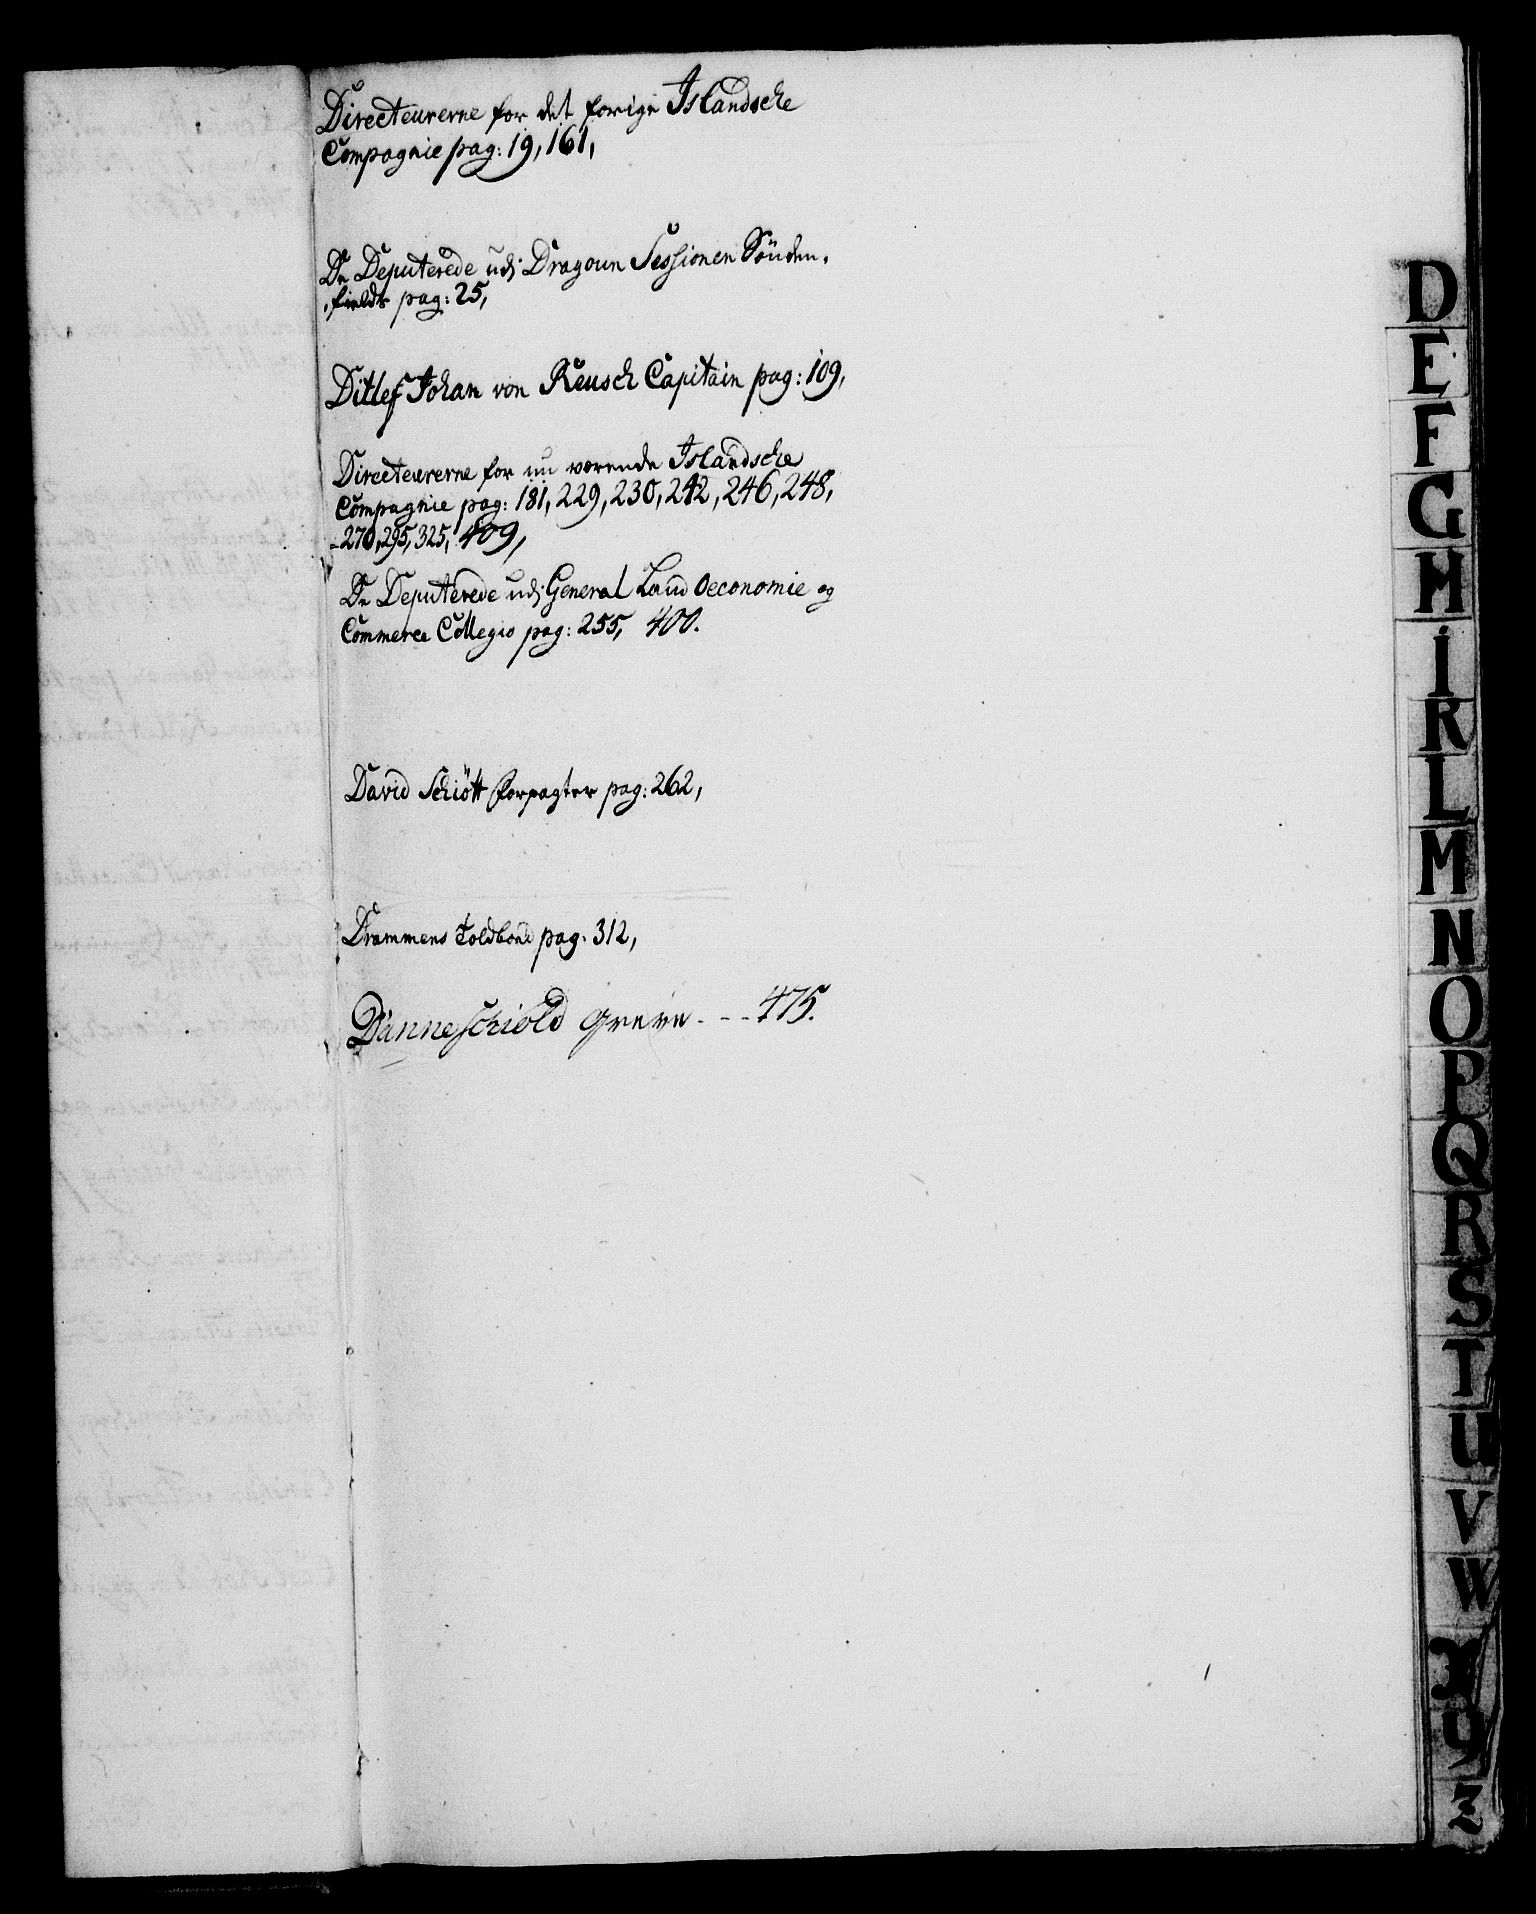 Directeurerne for det forige Islandsche
Compagnie pag: 19, 161,
De Deputerede udj Dragoun Sessionen Sönden-
fields pag: 25,
Ditlef Johan von Reusch Capitain pag: 109,
Directeurerne for nu værende Islandsche
Compagnie pag: 181, 229, 230, 242, 246, 248,
270, 295, 325, 409,
De Deputerede udj General Land Oeconomie og
Commerce Collegio pag: 255, 400.
David Schiött Forpagter pag: 262,
Drammens Toldbond pag: 312,
Danneschiold Greve - - - 475.
D
E
F
G
H
I
K
L
M
N
O
P
Q
R
S
T
U
V
W
X
Y
Z